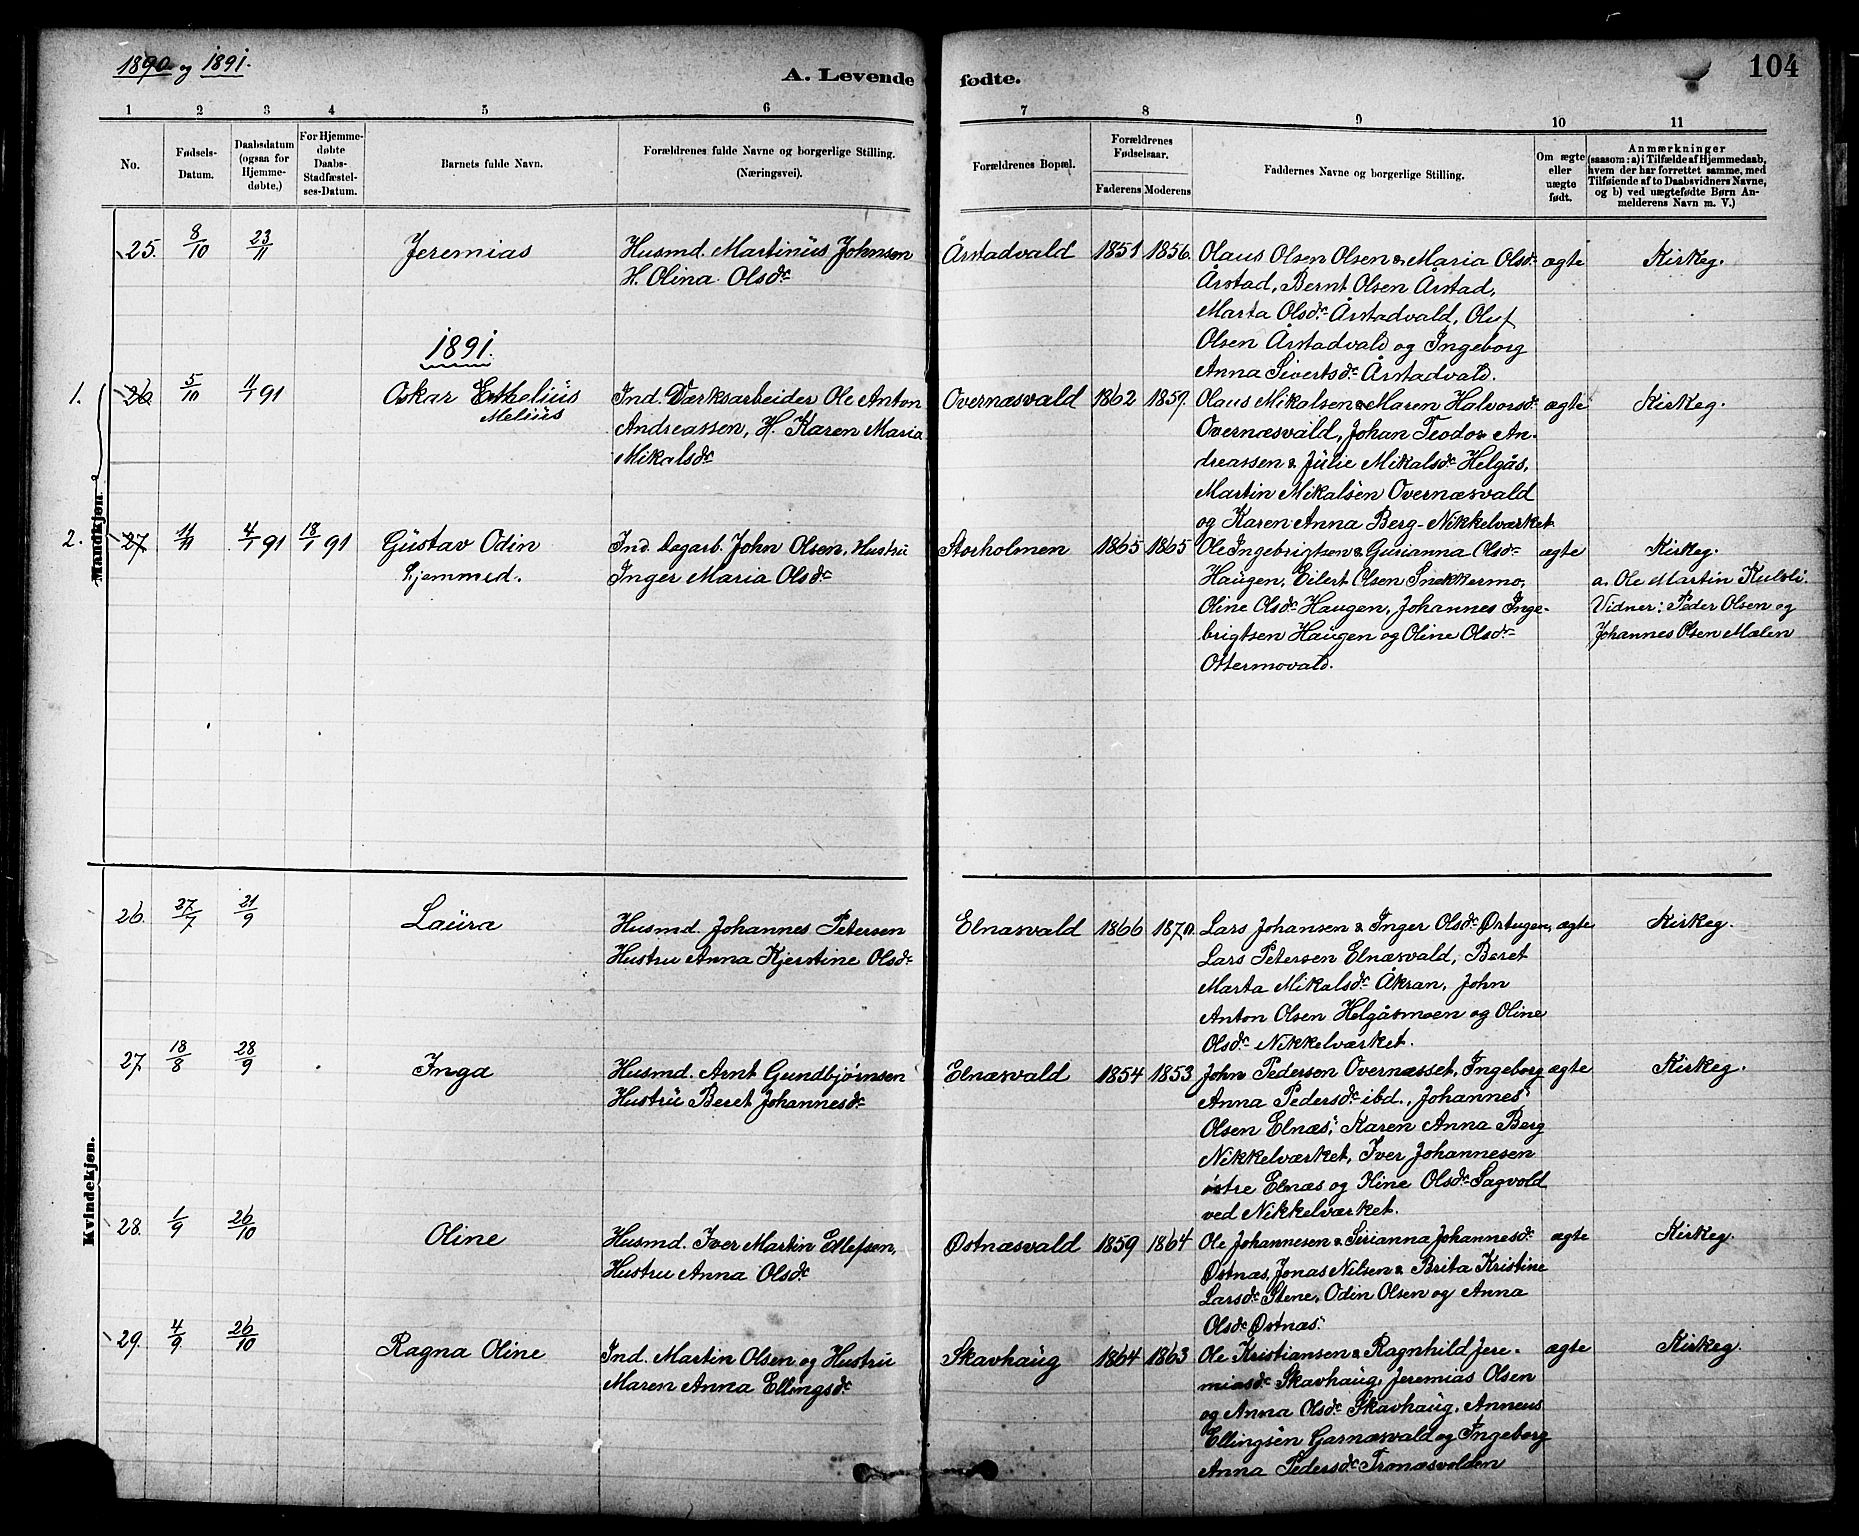 1890 og 1891.
A. Levende fødte.
104
1 2 3 4 5 6 7 8 9 10 11
No.
Fødsels-
Datum.
Daabsdatum
(ogsaa for
Hjemme-
døbte.)
For Hjemme-
døbte
Daabs-
Stadfæstel-
ses-Datum.
Barnets fulde Navn.
Forældrenes fulde Navne og borgerlige Stilling.
(Næringsvei).
Forældrenes Bopæl.
Forældrenes
Fødselsaar.
Faderens Moderens
Faddernes Navne og borgerlige Stilling.
Om ægte
eller
uægte
født.
Anmærkninger
(saasom: a) i Tilfælde af Hjemmedaab,
hvem der har forrettet samme, med
Tilføiende af to Daabsvidners Navne,
og b) ved uægtefødte Børn An-
melderens Navn m. V.)
Mandkjøn.
25. 8/10 23/11 Jeremias Husmd. Martinus Johnsen Årstadvald 1851 1856. Olaus Olsen Olsen & Maria Olsdr ægte Kirkeg.
H. Olina Olsdr Årstad, Bernt Olsen Årstad,
Marta Olsdr Årstadvald, Oluf
Olsen Årstadvald og Ingeborg
1891.
Anna Sivertsdr Årstadvald.
1. 26. 5/10 4/1 91 Oskar Enthelius Ind. Værksarbeider Ole Anton Overnæsvald 1862 1859. Olaus Mikalsen & Maren Halvorsdr ægte Kirkeg.
Melius Andreassen, H. Karen Maria Overnæsvald, Johan Teodor An-
Mikalsdr dreassen & Julie Mikalsdr Helgås,
Martin Mikalsen Overnæsvald
og Karen Anna Berg - Nikkelværket
2. 27 11/11 4/1 91 18/1 91 Gustav Odin Ind. Dagarb. John Olsen, Hustru Storholmen 1865 1865 Ole Ingebrigtsen & Gurianna Olsdr ægte Kirkeg.
hjemmed. Inger Maria Olsdr Haugen, Eilert Olsen Snekkermo, a. Ole Martin Kulsli.
Oline Olsdr Haugen, Johannes Inge- Vidner: Peder Olsen og
brigtsen Haugen og Oline Olsdr Johannes Olsen Malen
Ostermovald.
Kvindekjøn.
26. 27/7 21/9 Laura Husmd. Johannes Petersen Elnæsvald 1866 1870. Lars Johansen & Inger Olsdr Ørtugen, ægte Kirkeg.
Hustru Anna Kjerstine Olsdr Lars Petersen Elnæsvald, Beret
Marta Mikalsdr Åkran, John
Anton Olsen Helgåsmoen og Oline
Olsdr Nikkelværket.
27. 18/8 28/9 Inga Husmd. Arnt Gundbjørnsen Elnæsvald 1854 1853 John Pedersen Overnæsset, Ingeborg ægte Kirkeg.
Hustru Beret Johannesdr Anna Pedersdr ibd., Johannes
Olsen Elnæs, Karen Anna Berg
Nikkelværket, Iver Johannesen
østre Elnæs og Oline Olsdr Sagvold
ved Nikkelværket.
28. 1/9 26/10 Oline Husmd. Iver Martin Ellefsen, Østnæsvald 1859 1864 Ole Johannesen & Sirianna Johannesdr ægte Kirkeg.
Hustru Anna Olsdr Østnæs, Jonas Nilsen & Brita Kristine
Larsdr Stene, Odin Olsen og Anna
Olsdr Østnæs.
29. 4/9 26/10 Ragna Oline Ind. Martin Olsen og Hustru Skavhaug 1864 1863 Ole Kristiansen & Ragnhild Jere- ægte Kirkeg.
Maren Anna Ellingsdr miasdr Skavhaug, Jeremias Olsen
og Anna Olsdr Skavhaug, Anneus
Ellingsen Garnæsvald og Ingeborg
Anna Pedersdr Tronæsvolden